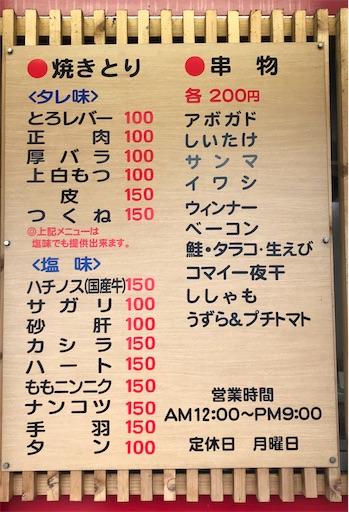 ●焼きとり
<タレ味>
とろレバー 100
正肉 100
厚バラ 100
上白もつ 100
皮 150
つくね 150
@上記メニューは
塩味でも提供出来ます。
<塩味>
ハチノス(国産牛)150
サガリ 100
砂肝 100
カシラ 150
ハート 150
ももニンニク 150
ナンコツ 150
手羽 150
タン 100
●串物
各200円
アボガド
しいたけ
サンマ
イワシ
ウィンナー
ベーコン
鮭・タラコ・生えび
コマイ一夜干
ししゃも
うずら&プチトマト
営業時間
AM12:00〜PM9:00
定休日 月曜日